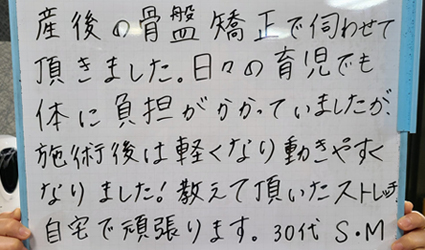 産後の骨盤矯正で伺わせて
頂きました。日々の育児でも
体に負担がかかっていましたが、
施術後は軽くなり動きやすく
なりました!教えて頂いたストレッチ、
自宅で頑張ります。30代 S・M